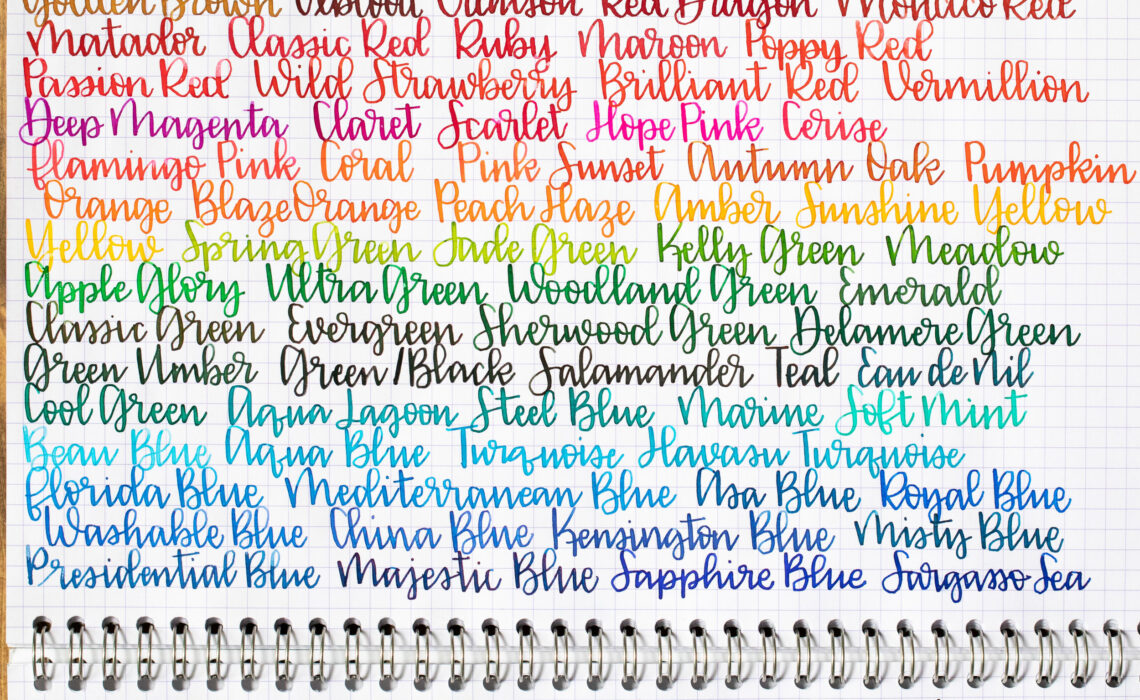 Golden Brown Oxblood Crimson Red Dragon Monaco Red
Matador Classic Red Ruby Maroon Poppy Red
Passion Red Wild Strawberry Brilliant Red Vermillion
Deep Magenta Claret Scarlet Hope Pink Cerise
Flamingo Pink Coral Pink Sunset Autumn Oak Pumpkin
Orange Blaze Orange Peach Haze Amber Sunshine Yellow
Yellow Spring Green Jade Green Kelly Green Meadow
Apple Glory Ultra Green Woodland Green Emerald
Classic Green Evergreen Sherwood Green Delamere Green
Green Umber Green/Black Salamander Teal Eau de Nil
Cool Green Aqua Lagoon Steel Blue Marine Soft Mint
Beau Blue Aqua Blue Turquoise Havasu Turquoise
Florida Blue Mediterranean Blue Asa Blue Royal Blue
Washable Blue China Blue Kensington Blue Misty Blue
Presidential Blue Majestic Blue Sapphire Blue Sargasso Sea